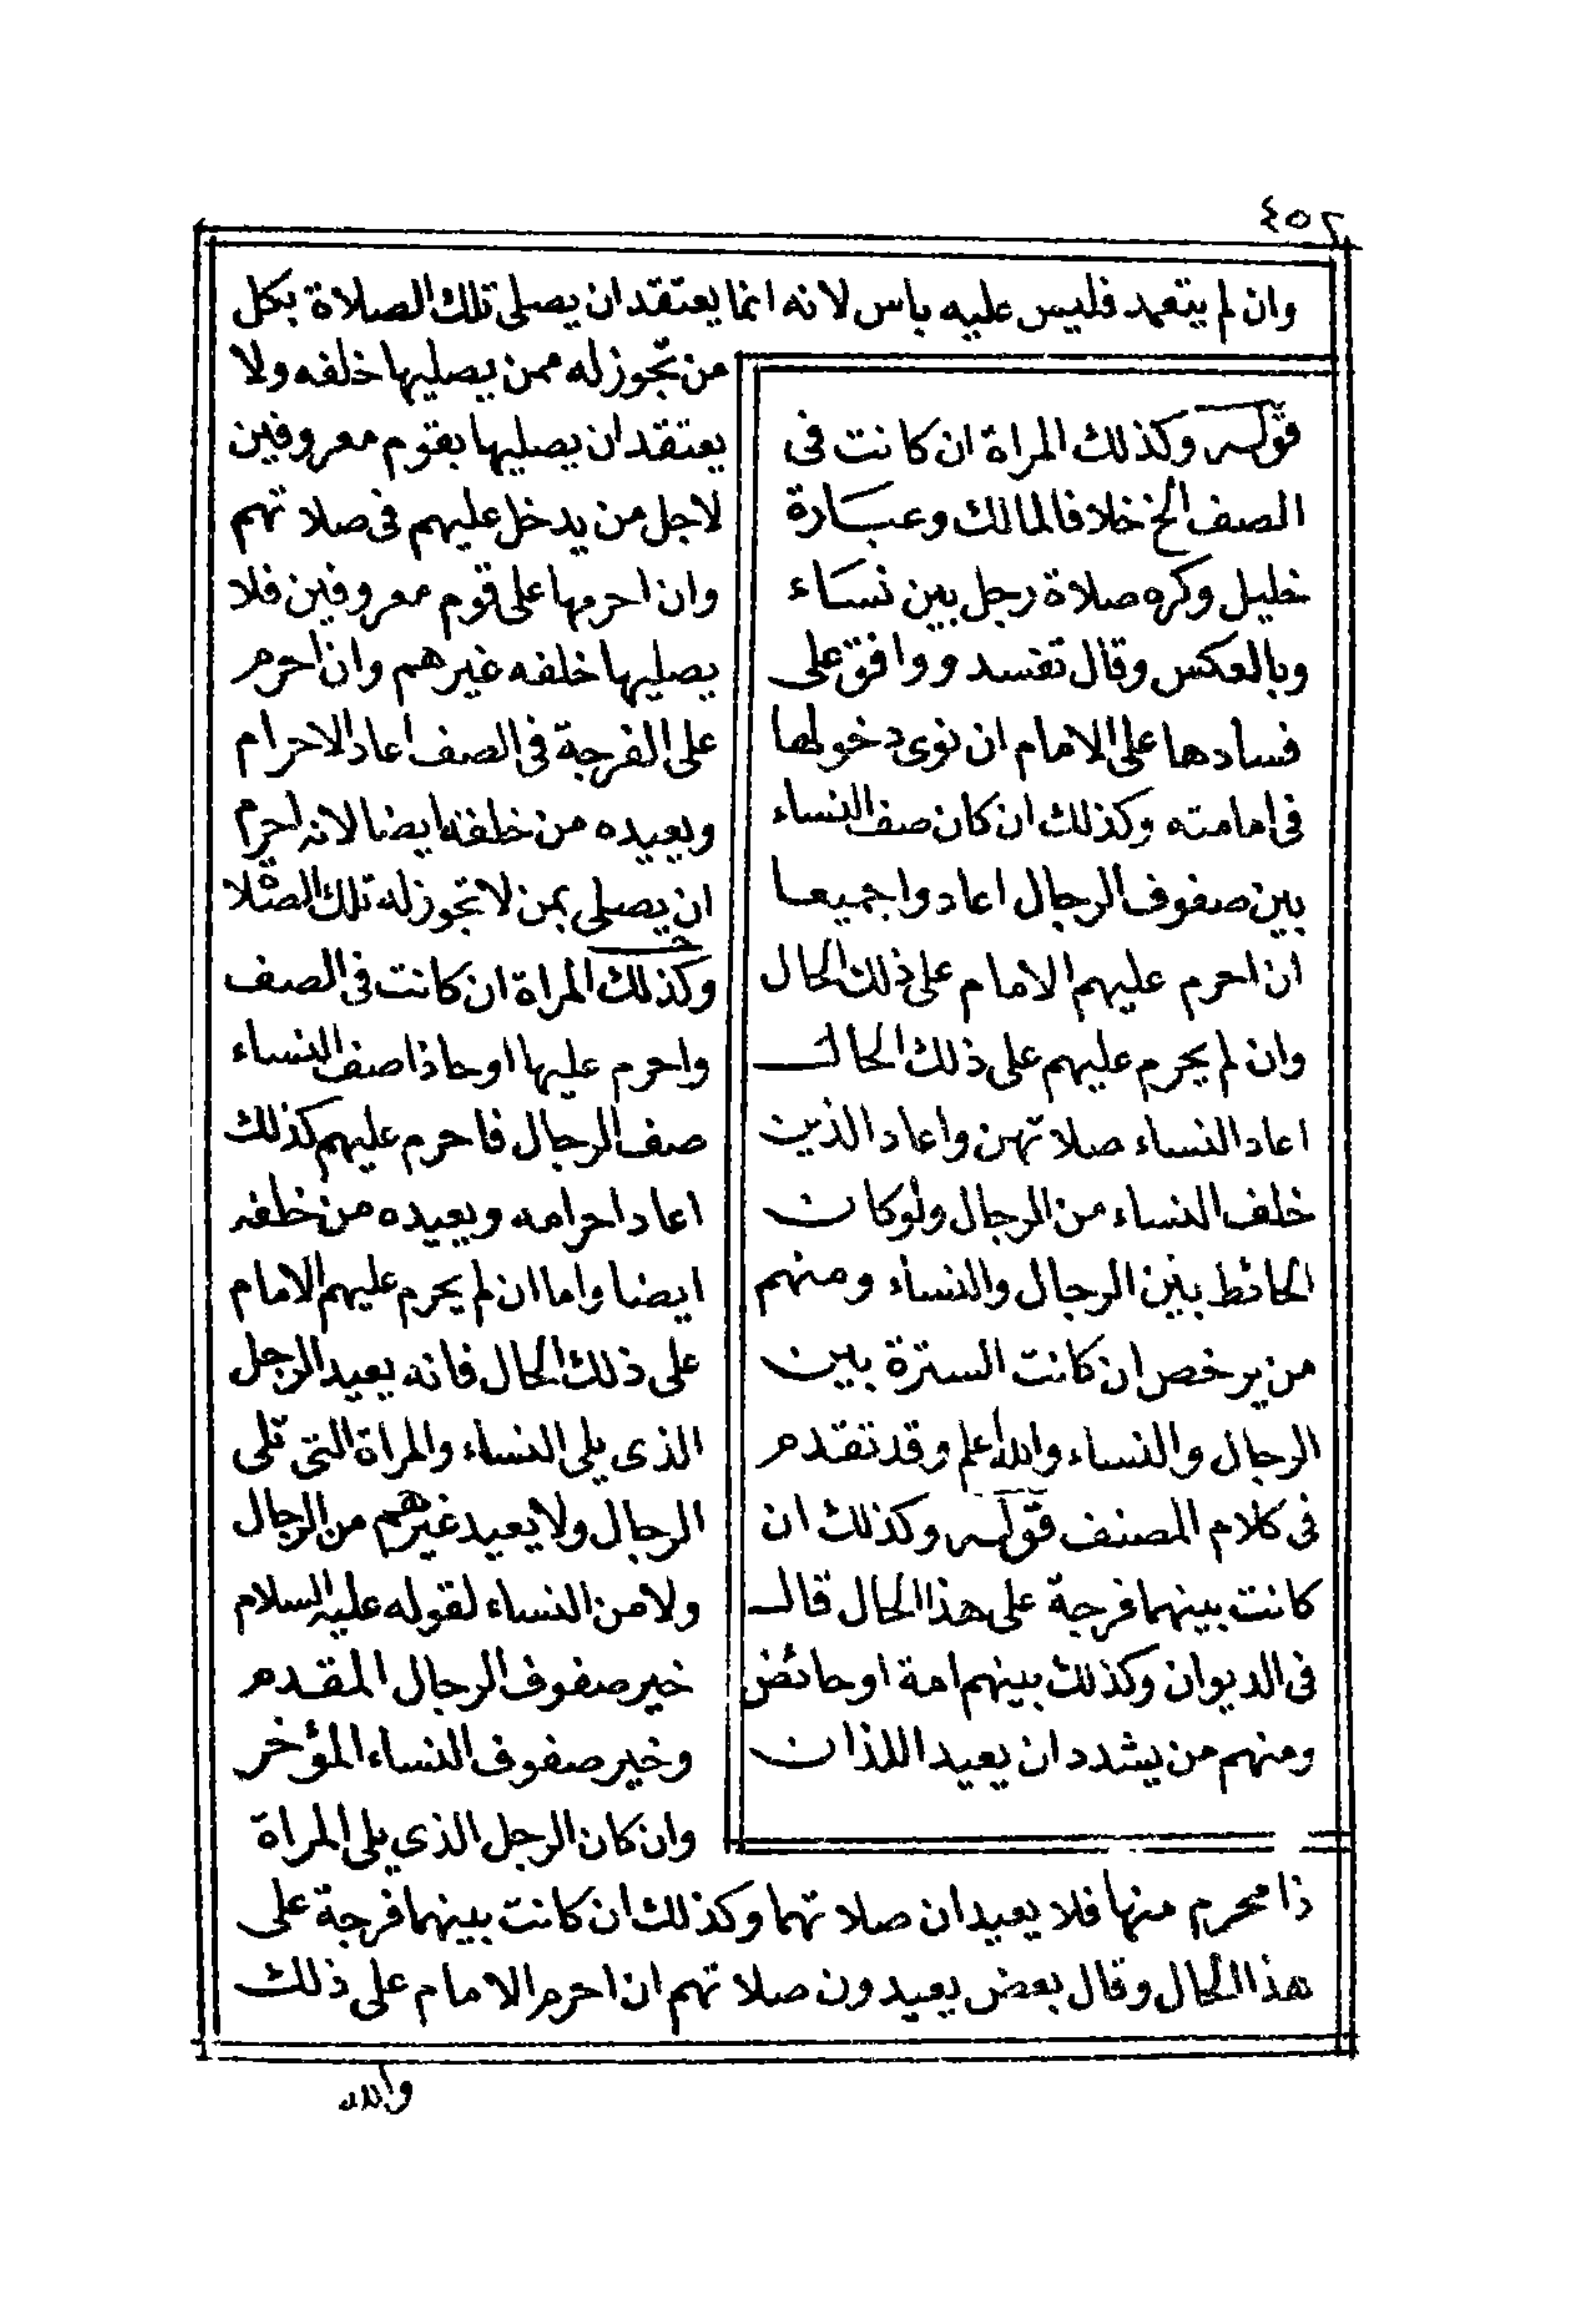 ٤٥٢
وان لم يتعمد فليس عليه باس لانه انما يعتقد ان يصلى تلك الصلاة بكل
من تجوز له ممن يصليها خلفه ولا
يعتقد ان يصليها بقوم معروفين
لاجل من يدخل عليهم فى صلاتهم
وان احرمها على قوم معروفين فلا
يصليها خلفه غيرهم وان احرم
على الفرجة فى الصف اعاد الاحرام
ويعيده من خلفه ايضا لانه احرم
ان يصلى بمن لا تجوز له تلك الصلاة
وكذلك المراة ان كانت فى الصف
واحرم عليها او حاذا صف النساء
صف الرجال فاحرم عليهم كذلك
اعاد احرامه ويعيده من خلفه
ايضا واما ان لم يحرم عليهم الامام
على ذلك الحال فانه يعيد الرجل
الذى يلى النساء والمراة التى تلى
الرجال ولا يعيد غيرهم من الرجال
ولا من النساء لقوله عليه السلام
خير صفوف الرجال المقدم
وخير صفوف النساء المؤخر
وان كان الرجل الذى يلى المراة
ذا محرم منها فلا يعيدان صلاتهما وكذلك ان كانت بينهما فرجة على
هذا الحال وقال بعض يعيدون صلاتهم ان احرم الامام على ذلك
قوله وكذلك المراة ان كانت فى
الصف الخ خلافا لمالك وعبارة
خليل وكره صلاة رجل بين نساء
وبالعكس وقال تفسد ووافق على
فسادها على الامام ان نوى دخولها
فى امامته وكذلك ان كان صف النساء
بين صفوف الرجال اعادوا جميعا
ان احرم عليهم الامام على ذلك الحال
وان لم يحرم عليهم على ذلك الحال
اعاد النساء صلاتهن واعاد الذين
خلف النساء من الرجال ولو كان
الحائط بين الرجال والنساء ومنهم
من يرخص ان كانت السترة بين
الرجال والنساء والله اعلم وقد تقدم
فى كلام المصنف قوله وكذلك ان
كانت بينهما فرجة على هذا الحال قال
فى الديوان وكذلك بينهم امة او حائض
ومنهم من يشدد ان يعيد اللذان
والله